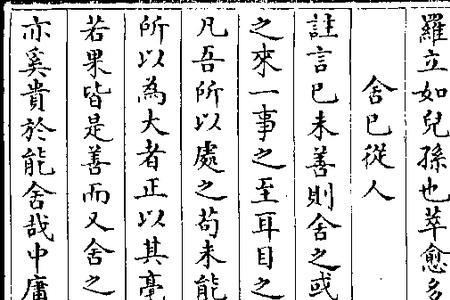 羅立如兒孫也萃愈名
舍已從人
註言已未善則舍之或
之來一事之至耳目之
凡吾所以處之苟未能
所以為大者正以其毫
若果皆是善而又舍之
亦奚貴於能舍哉中庸